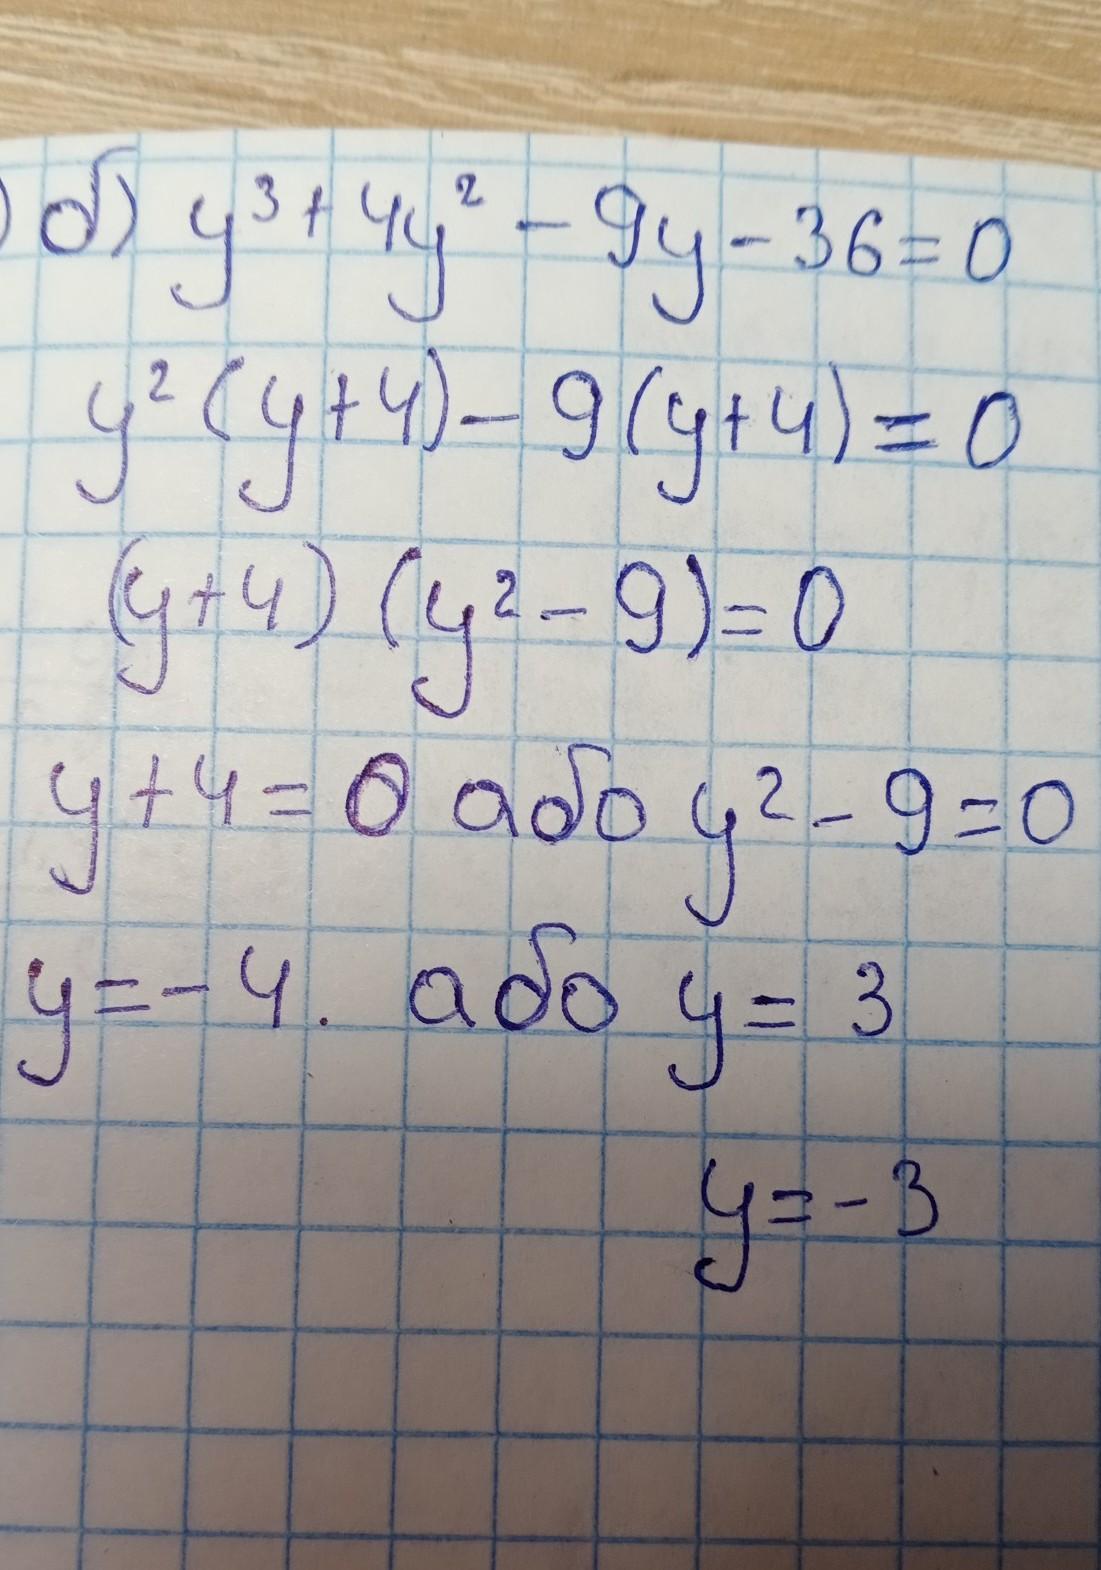 б) y³ + 4y² - 9y - 36 = 0
y² (y + 4) - 9 (y + 4) = 0
(y + 4) (y² - 9) = 0
y + 4 = 0 або y² - 9 = 0
y = - 4. або y = 3
y = - 3